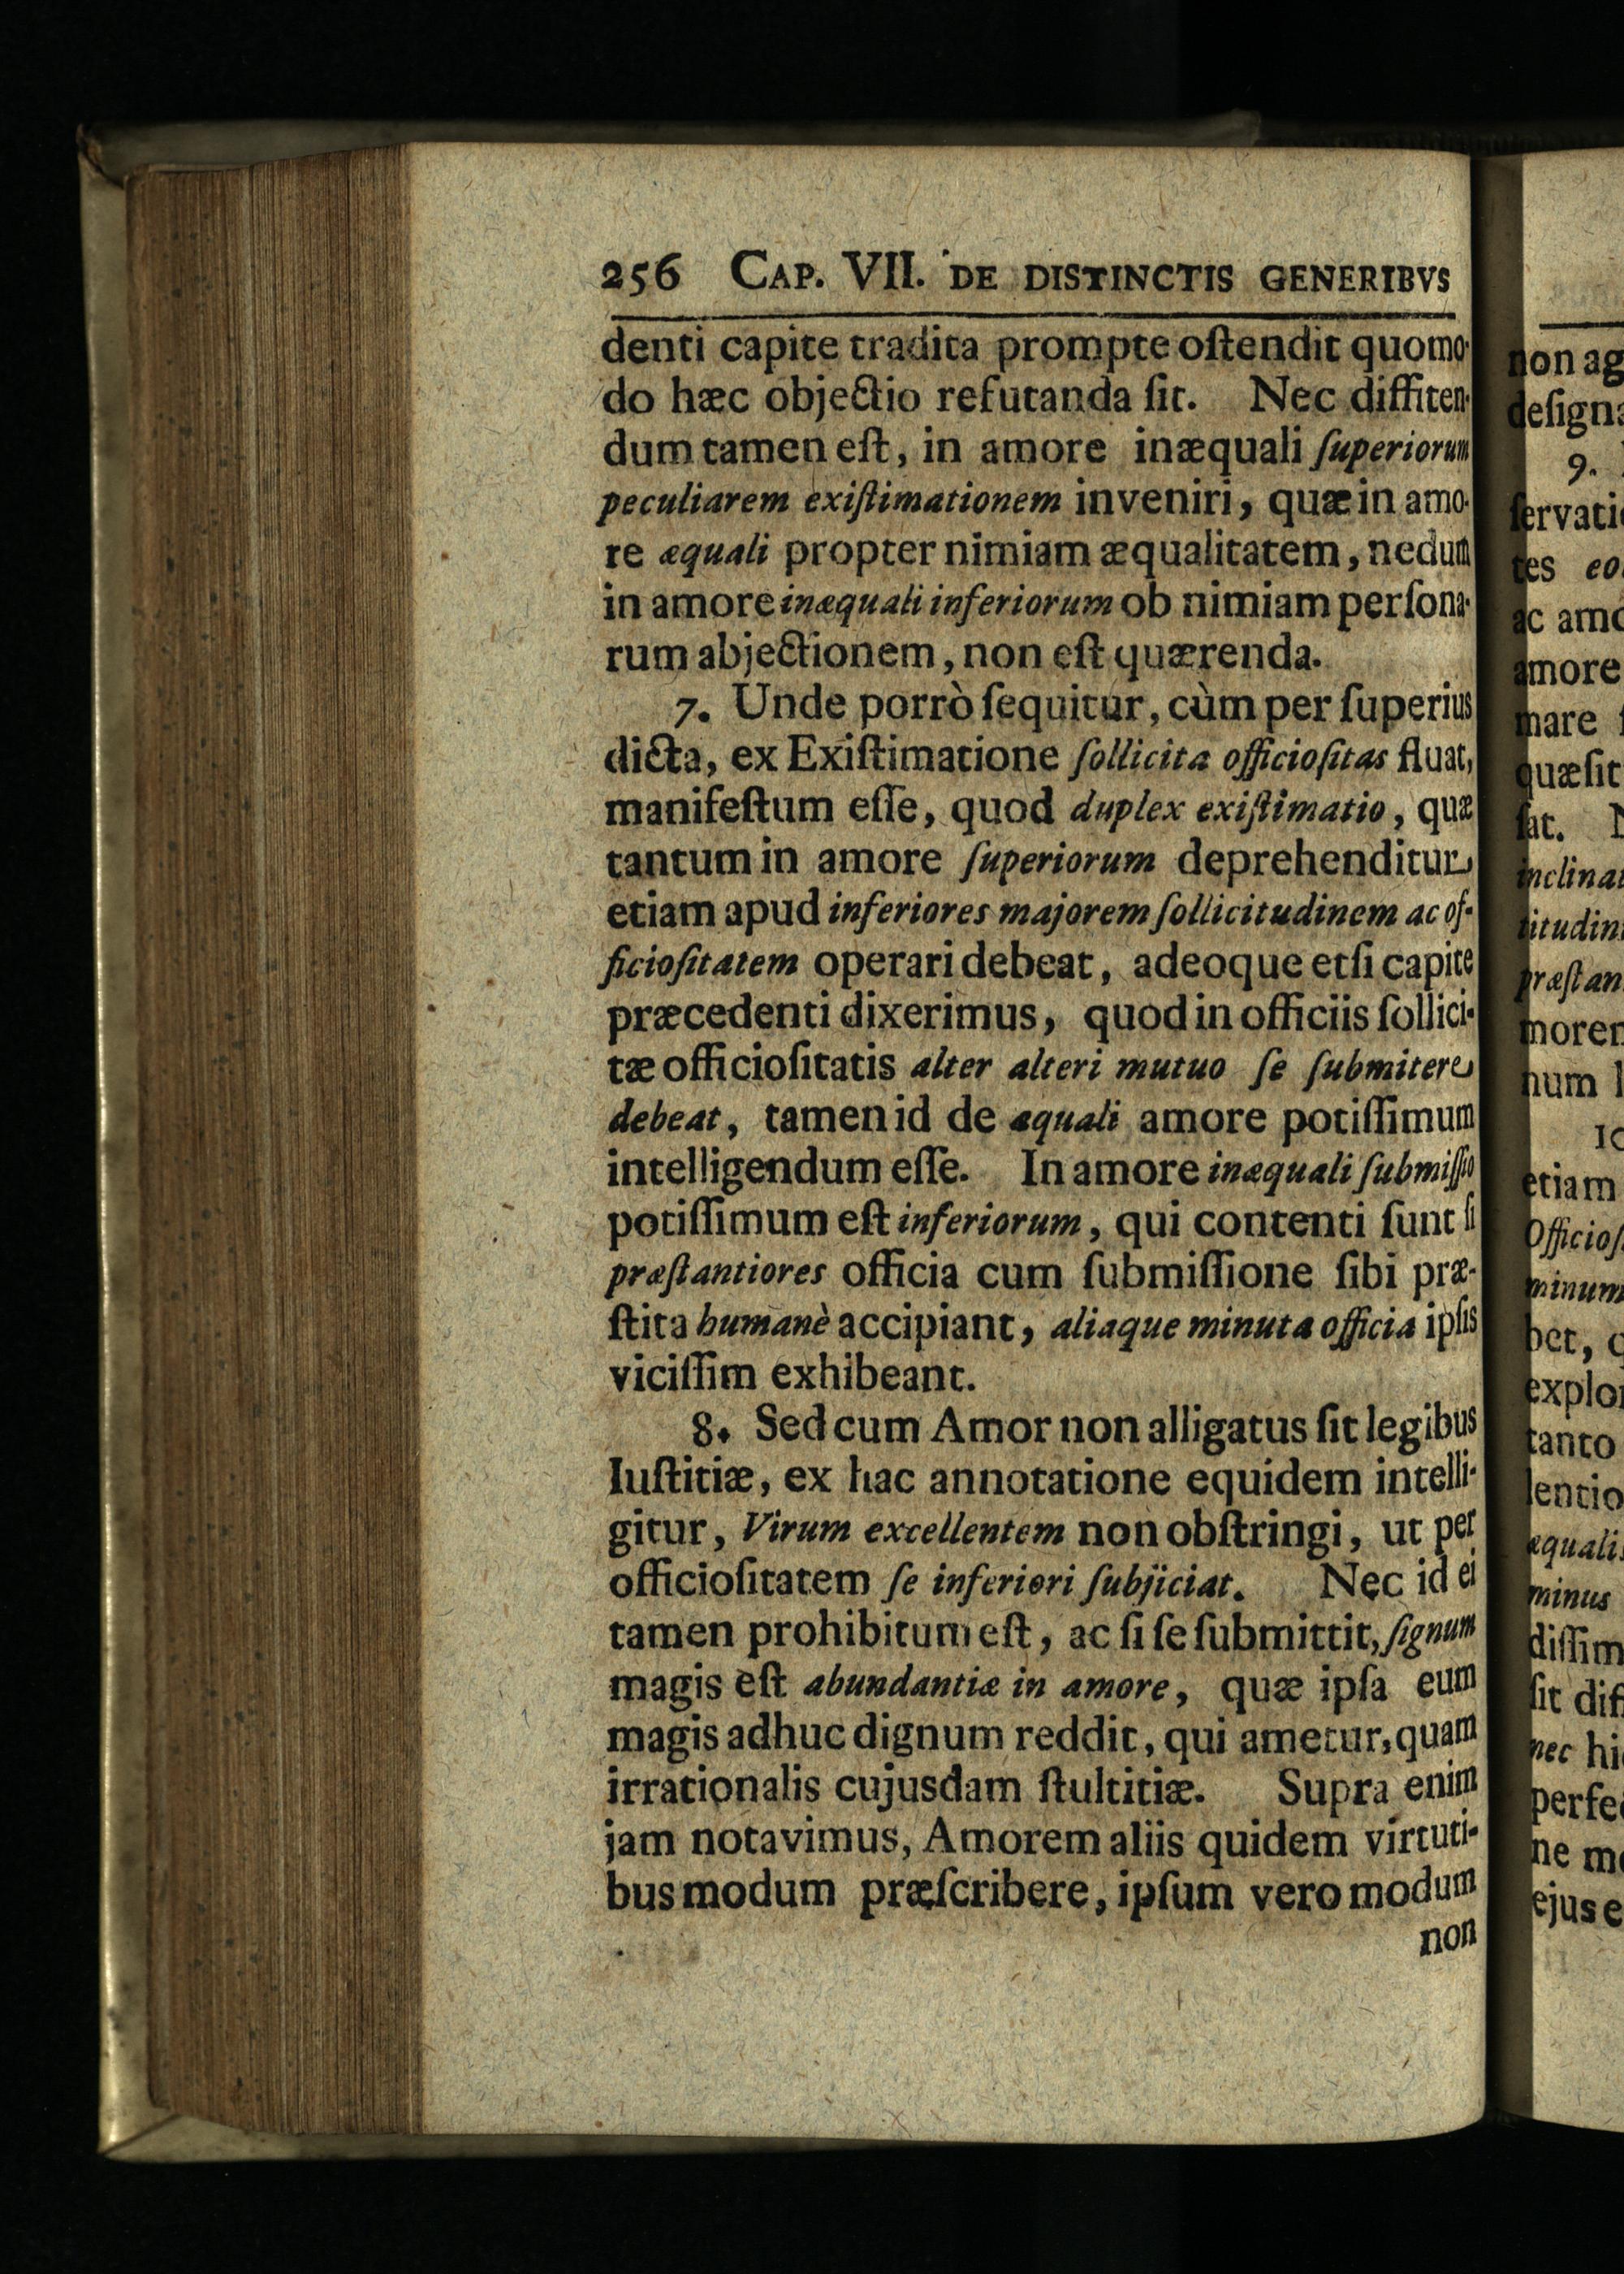 256 CAP. VII. DE DISTINCTIS GENERIBVS
denti capite tradita prompte oſtendit quomo-
do hæc objectio refutanda ſit. Nec diffiten-
dum tamen eſt, in amore inæquali ſuperiorum
peculiarem exiſtimationem inveniri, quæ in amo-
re æquali propter nimiam æqualitatem, nedum
in amore inæquali inferiorum ob nimiam perſona-
rum abjectionem, non eſt quærenda.
7. Unde porrò ſequitur, cùm per ſuperius
dicta, ex Exiſtimatione ſollicita officioſitas fluat,
manifeſtum eſſe, quod duplex exiſtimatio, quæ
tantum in amore ſuperiorum deprehenditur
etiam apud inferiores majorem ſollicitudinem ac of-
ficioſitatem operari debeat, adeoque etſi capite
præcedenti dixerimus, quod in officiis ſollici-
tæ officioſitatis alter alteri mutuo ſe ſubmitere
debeat, tamen id de æquali amore potiſſimum
intelligendum eſſe. In amore inæquali ſubmiſſio
potiſſimum eſt inferiorum, qui contenti ſunt ſi
præſtantiores officia cum ſubmiſſione ſibi præ-
ſtita humanè accipiant, aliaque minuta officia ipſis
viciſſim exhibeant.
8. Sed cum Amor non alligatus ſit legibus
Iuſtitiæ, ex hac annotatione equidem intelli-
gitur, Virum excellentem non obſtringi, ut per
officioſitatem ſe inferiori ſubjiciat. Nec id ei
tamen prohibitum eſt, ac ſi ſe ſubmittit, ſignum
magis eſt abundantiæ in amore, quæ ipſa eum
magis adhuc dignum reddit, qui ametur, quam
irrationalis cujusdam ſtultitiæ. Supra enim
jam notavimus, Amorem aliis quidem virtuti-
bus modum præſcribere, ipſum vero modum
non
non ag
deſign
9.
ſervati
tes eo
ac amo
amore
mare
quæſit
ſat.
inclinat
titudin
præſtan
morem
num
10
etiam
Officioſ
minum
bet,
explo
tanto
lentio
æquali
minus
diſſim
ſit dif
nec hi
perfe
ne m
ejus e